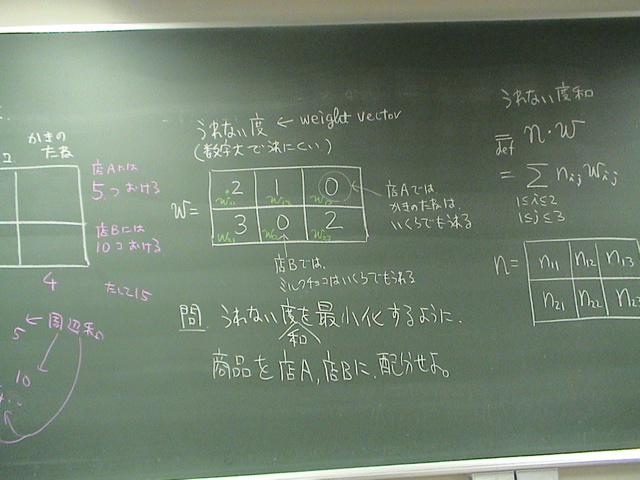 かきの
たね
店Aには
5つおける
店Bには
10コおける
4
たして15
5 ← 周辺和の
10
うれない度 ← weight vector
(数字大で売にくい)
w =
2 1 0
w11 w12 w13
3 0 2
w21 w22 w23
店Aでは、
かきのたねは、
いくらでもうれる
店Bでは、
ミルクチョコはいくらでもうれる
問. うれない度を最小化するように、
和
商品を店A, 店Bに、配分せよ。
うれない度和
= def n・w
= Σ nij wij
1≤i≤2
1≤j≤3
n =
n11 n12 n13
n21 n22 n23